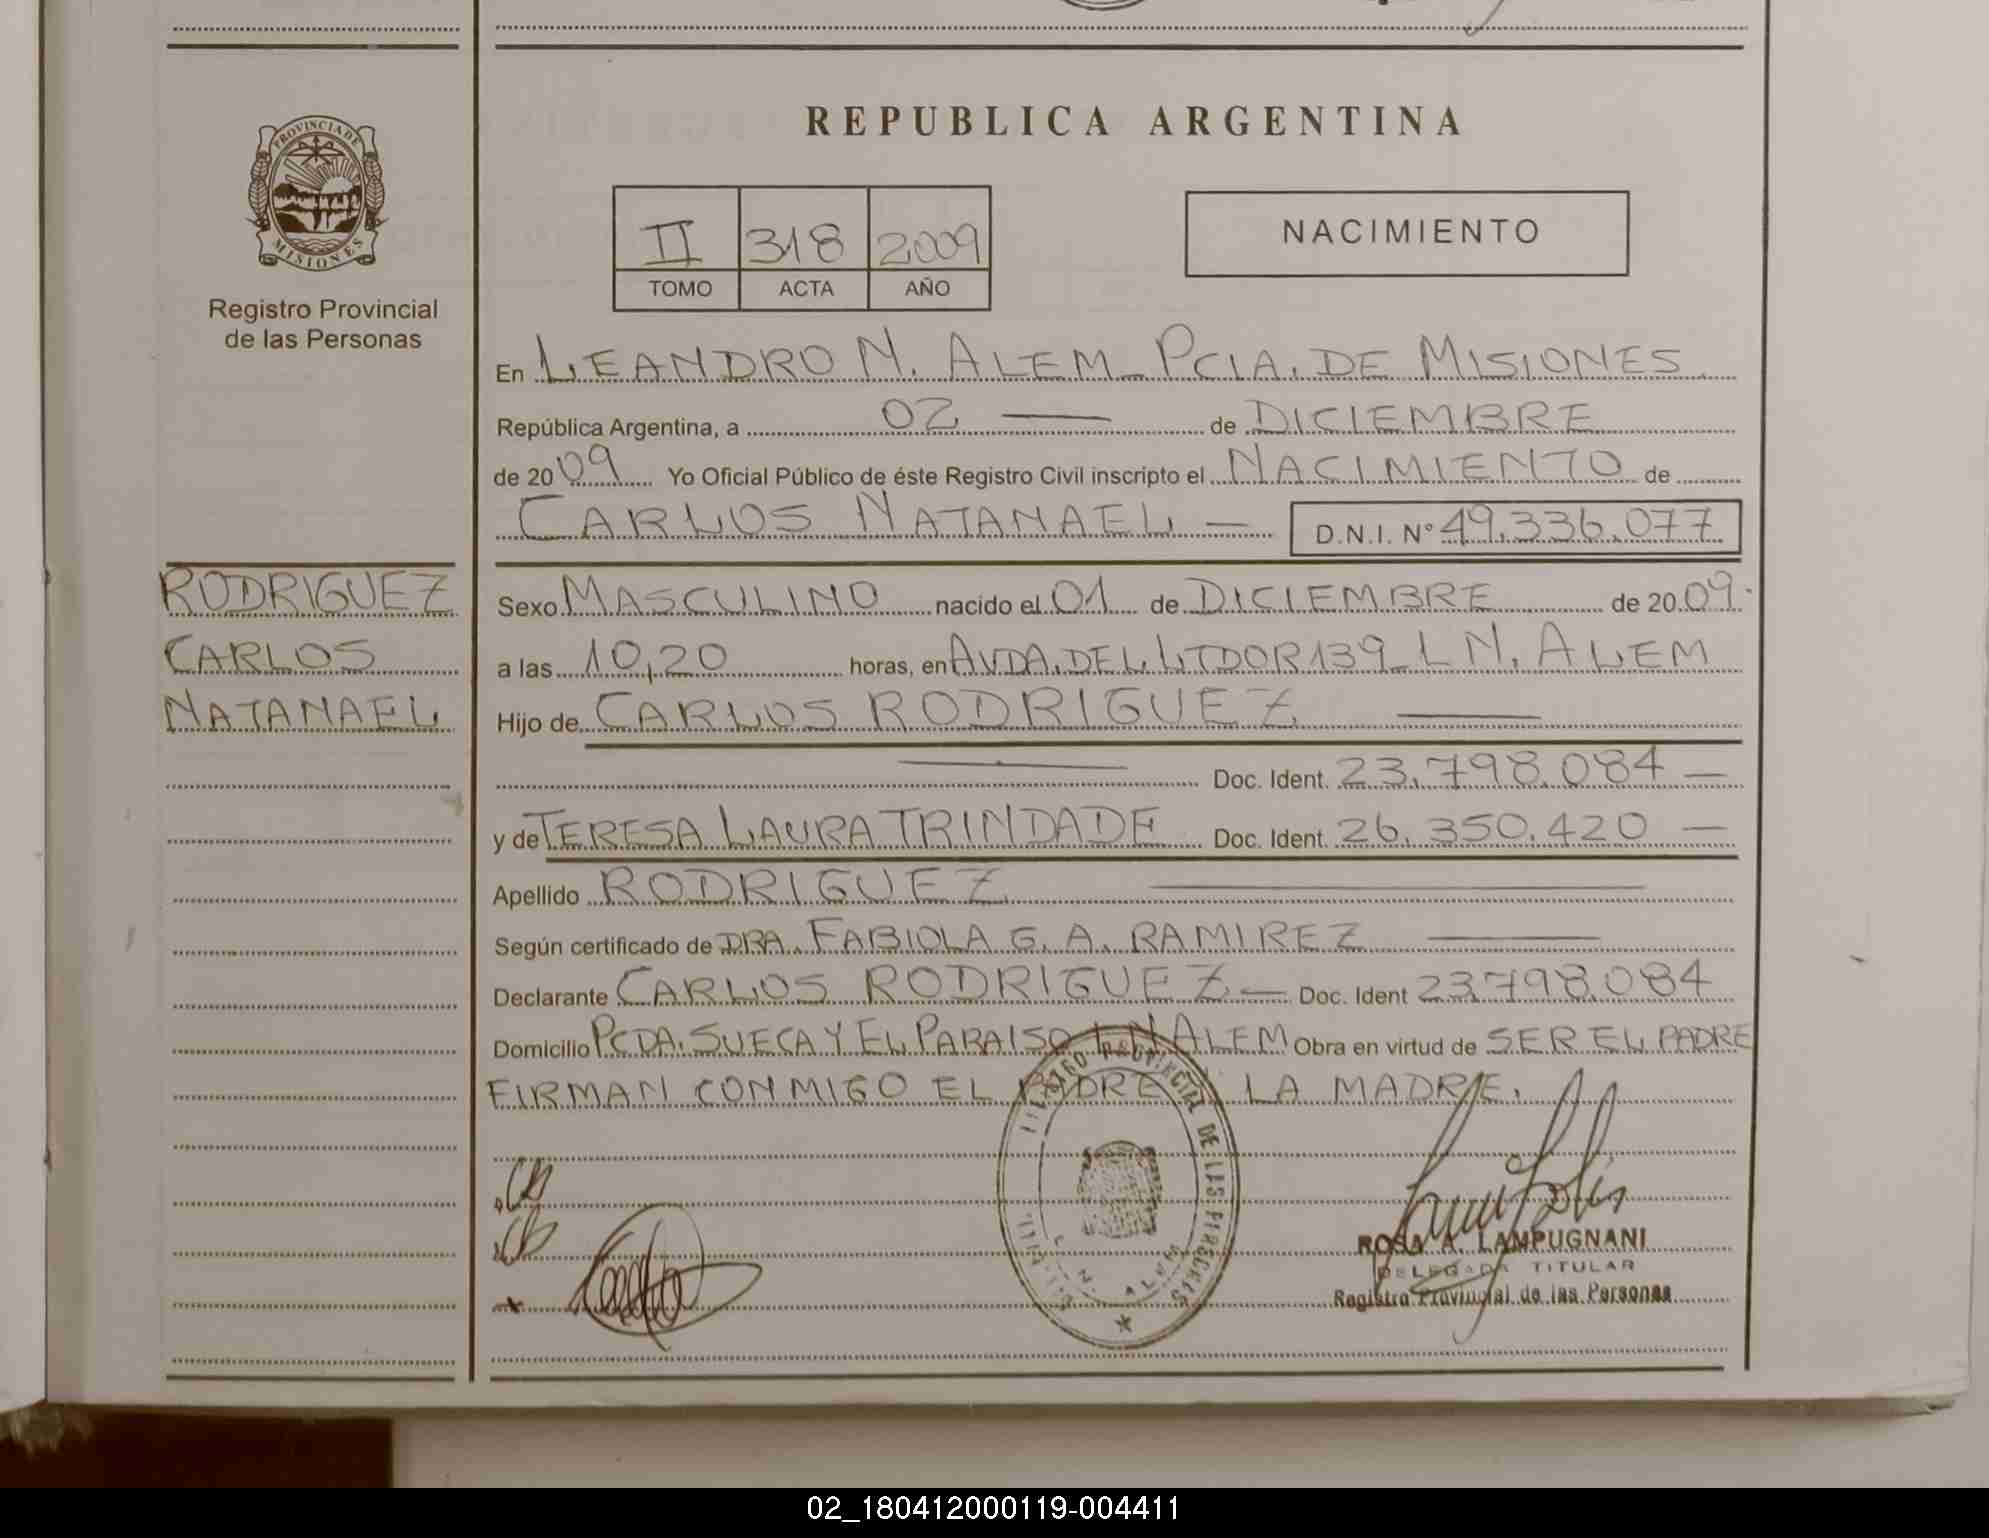 PROVINCIA DE
MISIONES
Registro Provincial
de las Personas
RODRIGUEZ
CARLOS
NATANAEL
REPUBLICA ARGENTINA
II 318 2009
TOMO ACTA AÑO
NACIMIENTO
En LEANDRO N. ALEM - PCIA. DE MISIONES
República Argentina, a 02 — de DICIEMBRE
de 2009 Yo Oficial Público de éste Registro Civil inscripto el NACIMIENTO de
CARLOS NATANAEL — D.N.I. Nº 49.336.077
Sexo MASCULINO nacido el 01 de DICIEMBRE de 2009.
a las 10,20 horas, en AVDA. DEL LTDOR 139 - L N. ALEM
Hijo de CARLOS RODRIGUEZ —
— Doc. Ident. 23.798.084 —
y de TERESA LAURA TRINDADE Doc. Ident. 26.350.420 —
Apellido RODRIGUEZ —
Según certificado de DRA. FABIOLA G. A. RAMIREZ —
Declarante CARLOS RODRIGUEZ — Doc. Ident 23.798.084
Domicilio PCDA. SUECA Y EL PARAISO L N ALEM Obra en virtud de SER EL PADRE
FIRMAN CONMIGO EL PADRE Y LA MADRE.
REGISTRO PROVINCIAL DE LAS PERSONAS
L. N. ALEM
ROSA A. LAMPUGNANI
DELEGADA TITULAR
Registro Provincial de las Personas
02_180412000119-004411